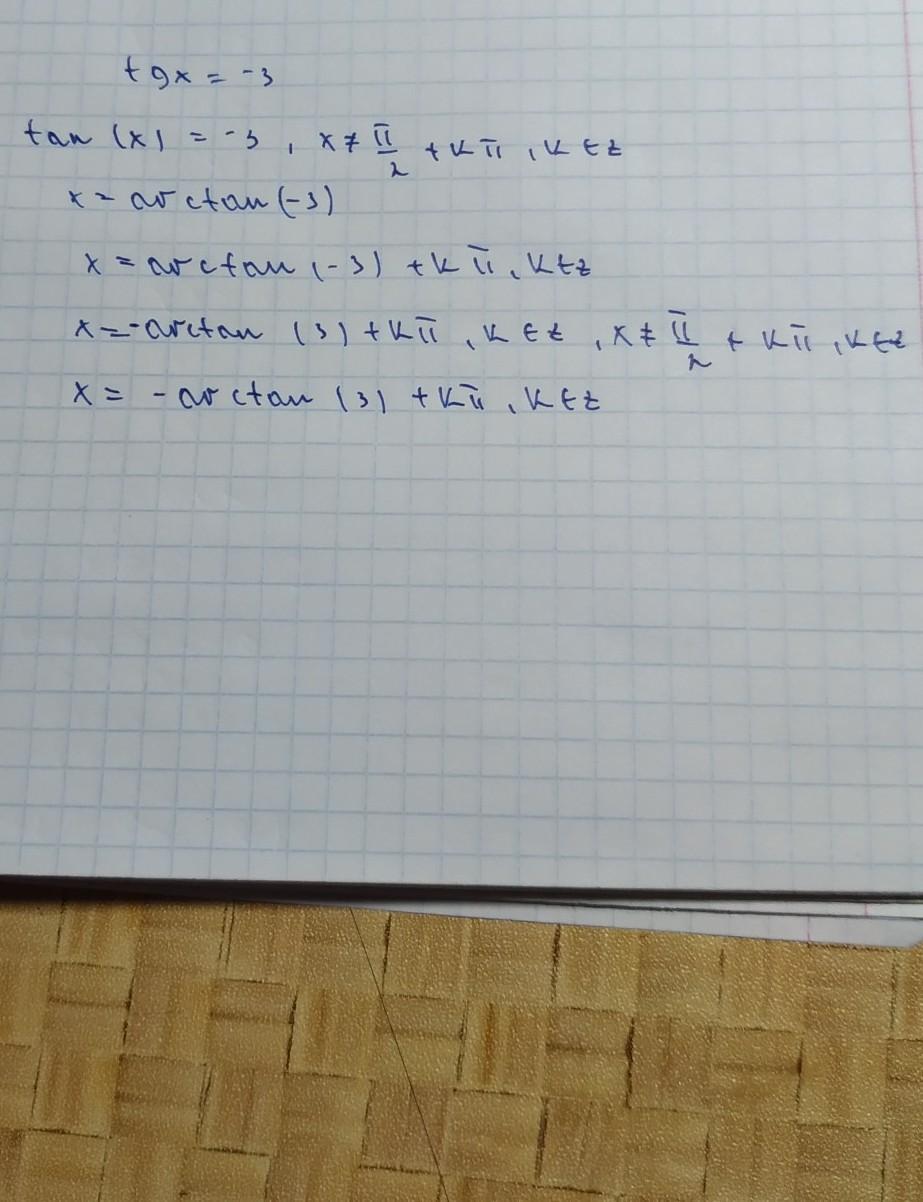 tgx = -3
tan (x) = -3, x ≠ π/2 + kπ, k ∈ z
x = arctan (-3)
x = arctan (-3) + kπ, k ∈ z
x = -arctan (3) + kπ, k ∈ z, x ≠ π/2 + kπ, k ∈ z
x = -arctan (3) + kπ, k ∈ z